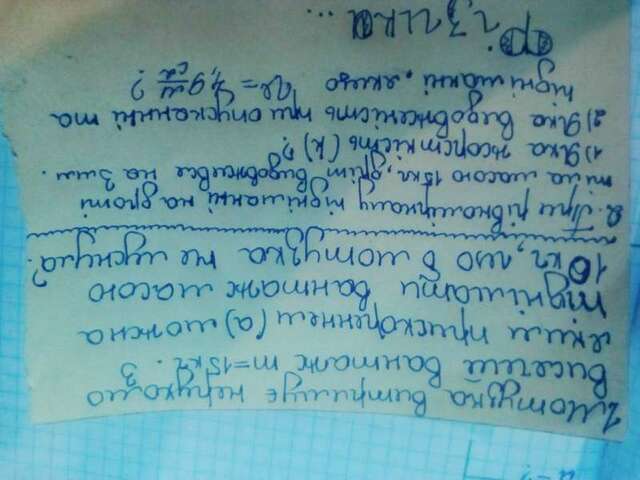 1. Мотузка витримує нерухомо
висячий вантаж m=15кг. З
яким прискоренням (a) можна
піднімати вантаж масою
10кг, що б мотузка не луснула?
2. При рівномірному підніманні на дроті
тіла масою 15кг, дріт видовжився на 3мм.
1) Яка жорсткість (k)?
2) Яка видовженість при опусканнні та
підніманні, якщо V= 4,9 м/с²?
Фізика...